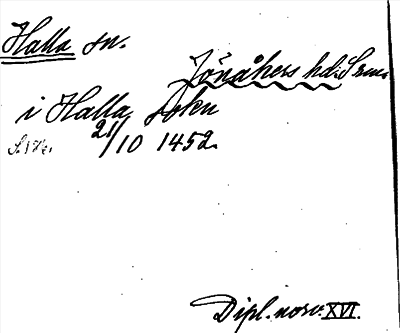 Halla sn.
Jönåkers hd. Srm.
i Halla sokn
21/10 1452.
Dipl. norv. XVI.